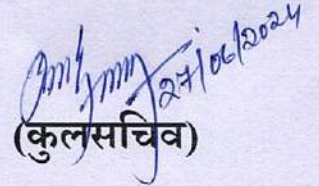 27/06/2024
(कुलसचिव)